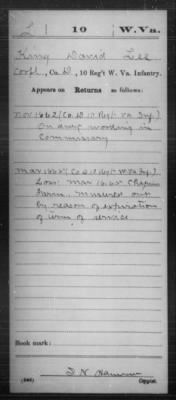 L 10 W.Va.
King David Lee
Corpl., Co. D, 10 Reg't W. Va. Infantry.
Appears on Returns as follows:
Nov 1862 (Co D 10 Regt Va Inf.)
On duty working in
Commissary
Mar 1865 (Co D 10 Regt W Va Inf.)
Loss: Mar 1865 Chapins
Farm. Mustered out
by reason of expiration
of term of service
Book mark:
(546) Copyist.